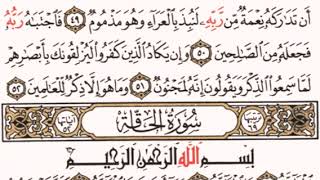 أَن تَدَٰرَكَهُۥ نِعْمَةٌ مِّن رَّبِّهِۦ لَنُبِذَ بِٱلْعَرَآءِ وَهُوَ مَذْمُومٌ ٤٩ فَٱجْتَبَٰهُ رَبُّهُۥ
فَجَعَلَهُۥ مِنَ ٱلصَّٰلِحِينَ ٥٠ وَإِن يَكَادُ ٱلَّذِينَ كَفَرُوا۟ لَيُزْلِقُونَكَ بِأَبْصَٰرِهِمْ
لَمَّا سَمِعُوا۟ ٱلذِّكْرَ وَيَقُولُونَ إِنَّهُۥ لَمَجْنُونٌ ٥١ وَمَا هُوَ إِلَّا ذِكْرٌ لِّلْعَٰلَمِينَ ٥٢
ترتيبها ٦٩ سُورَةُ الحَاقَّةِ آياتها ٥٢
بِسْمِ ٱللَّهِ ٱلرَّحْمَٰنِ ٱلرَّحِيمِ